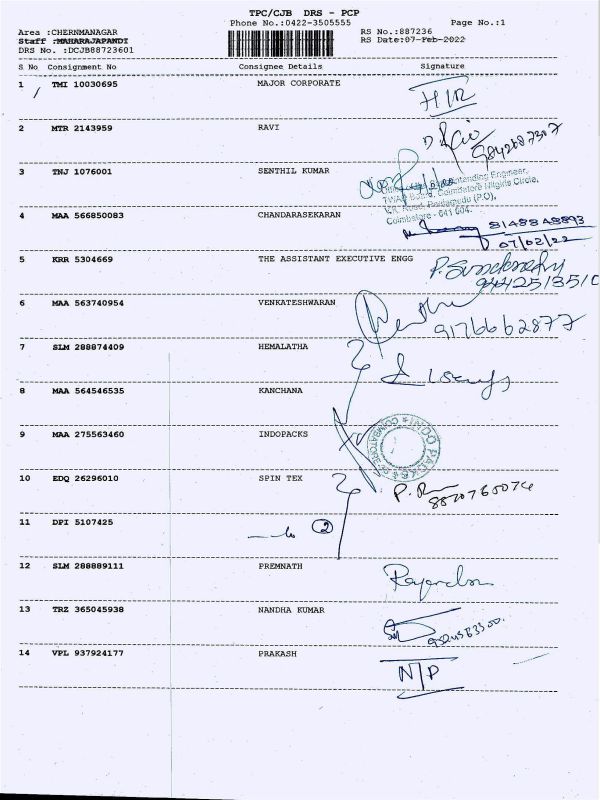 TPC/CJB DRS - PCP
Phone No.:0422-3505555 Page No.:1
Area :CHERMANAGAR RS No.:887236
Staff :MAHARAJAPANDI RS Date:07-Feb-2022
DRS No. :DCJB88723601
S No Consignment No Consignee Details Signature
1 TMI 10030695 MAJOR CORPORATE
2 MTR 2143959 RAVI
9842687307
3 TNJ 1076001 SENTHIL KUMAR
Engineer,
TWAD Board, Coimbatore Circle,
Coimbatore - 641 604.
4 MAA 566850083 CHANDARASEKARAN 8148848893
07/02/22
5 KRR 5304669 THE ASSISTANT EXECUTIVE ENGG
6 MAA 563740954 VENKATESHWARAN
9176662877
7 SLM 288874409 HEMALATHA
8 MAA 564546535 KANCHANA
9 MAA 275563460 INDOPACKS
INDO PACKS
10 EDQ 26296010 SPIN TEX
11 DPI 5107425 2
12 SLM 288889111 PREMNATH
13 TRZ 365045938 NANDHA KUMAR
14 VPL 937924177 PRAKASH
N/P